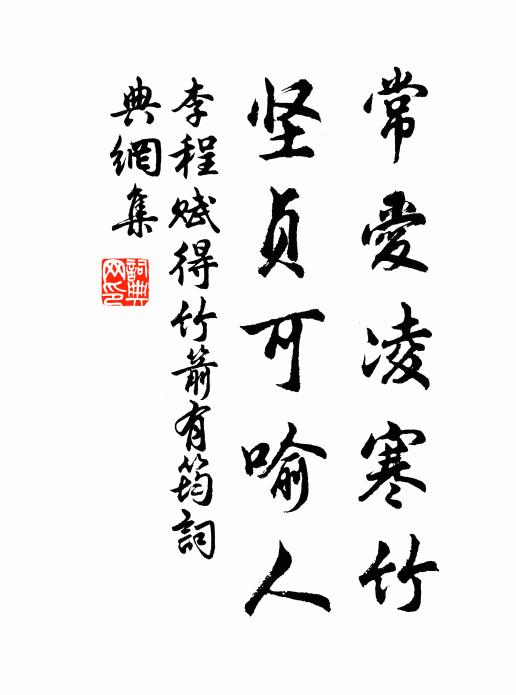 常愛凌寒竹
坚贞可喻人
李程赋得竹箭有筠詞
典網集
詞典网印